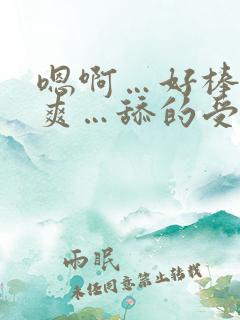 嗯啊…好棒
爽…舔的受
雨眠
未经同意禁止转载